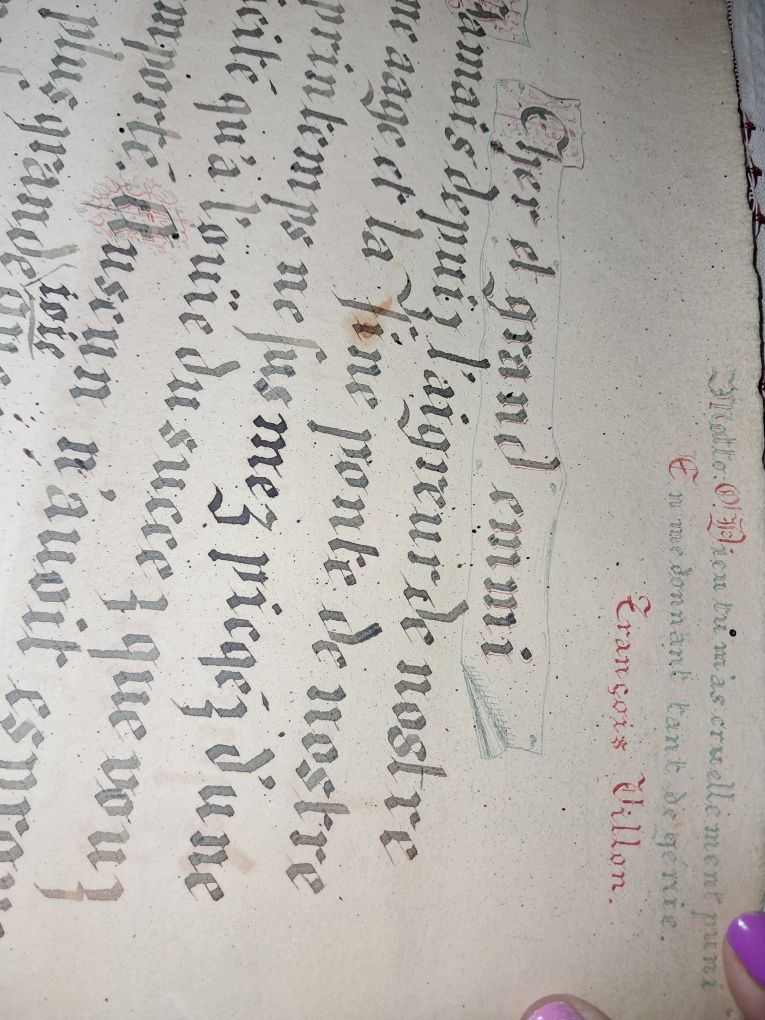 Motto. O Dieu tu m'as cruellement puni
En me donnant tant de genie.
François Villon.
Cher et grand emmi
Jamais depuiz l'aigreur de nostre
me aage et la fine ponte de nostre
printemps ne fus mez picqéz d'une
cité qu'a l'oüie du succez que vouz
mporté. Auscun n'avoit
plus grande
iois